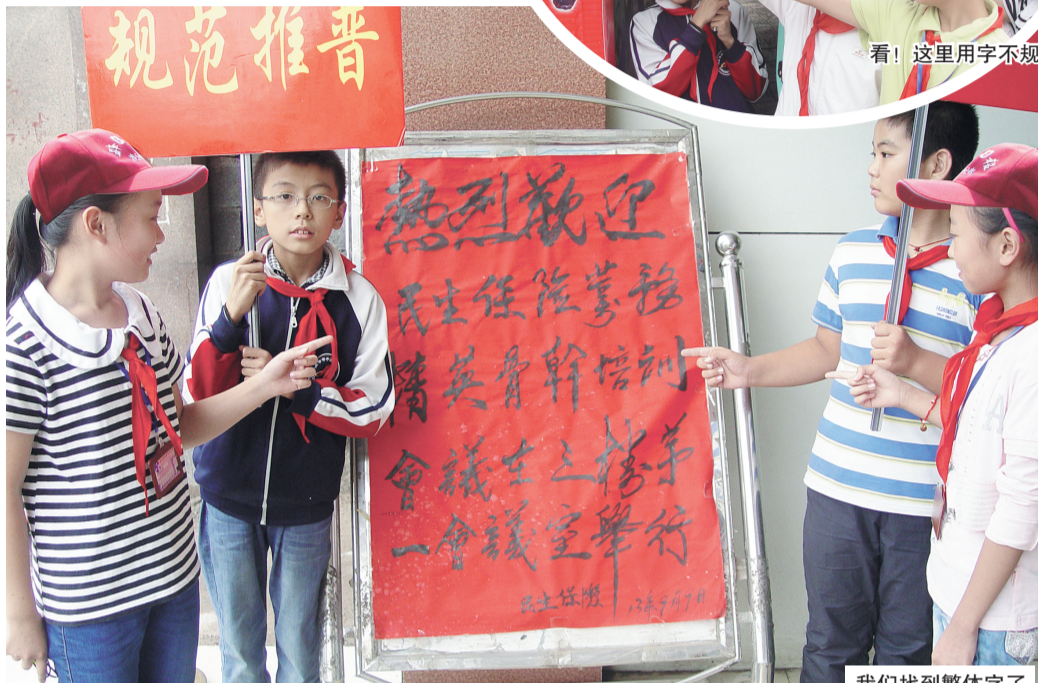 规范推普
看！这里用字不规
熱烈歡迎
民生保险業務
精英骨幹培训
會議在三楼第
一會議室舉行
民生保险
我们找到繁体字了